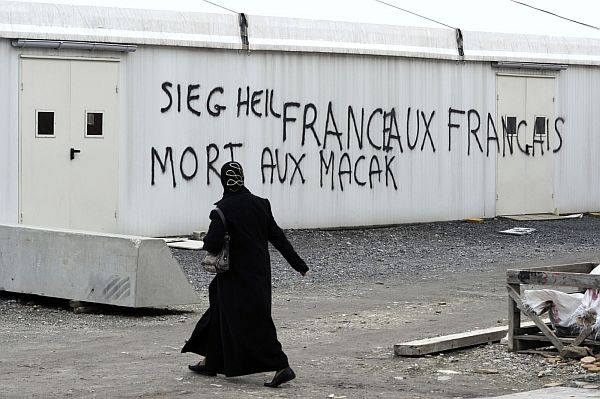 SIEG HEIL FRANCE AUX FRANCAIS
MORT AUX MACAK